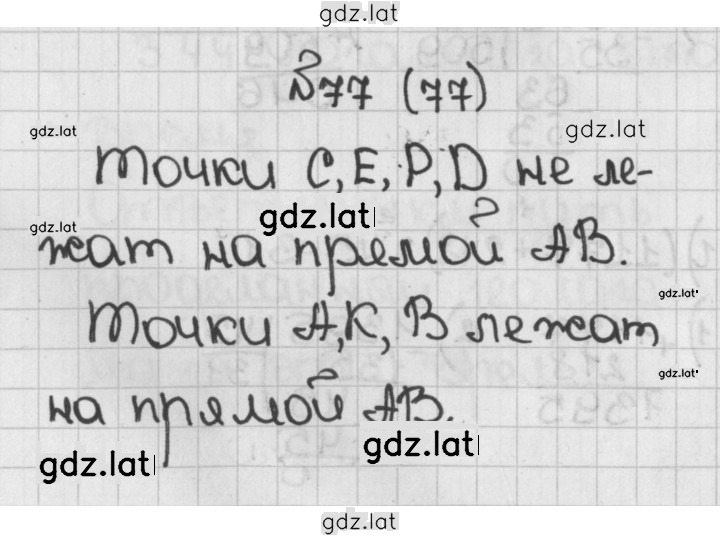 gdz.lat
№77 (77)
gdz.lat
gdz.lat
Точки C, E, P, D не ле-
gdz.lat
gdz.lat
жат на прямой AB.
gdz.lat
Точки A, K, B лежат
gdz.lat
на прямой AB.
gdz.lat
gdz.lat
gdz.lat